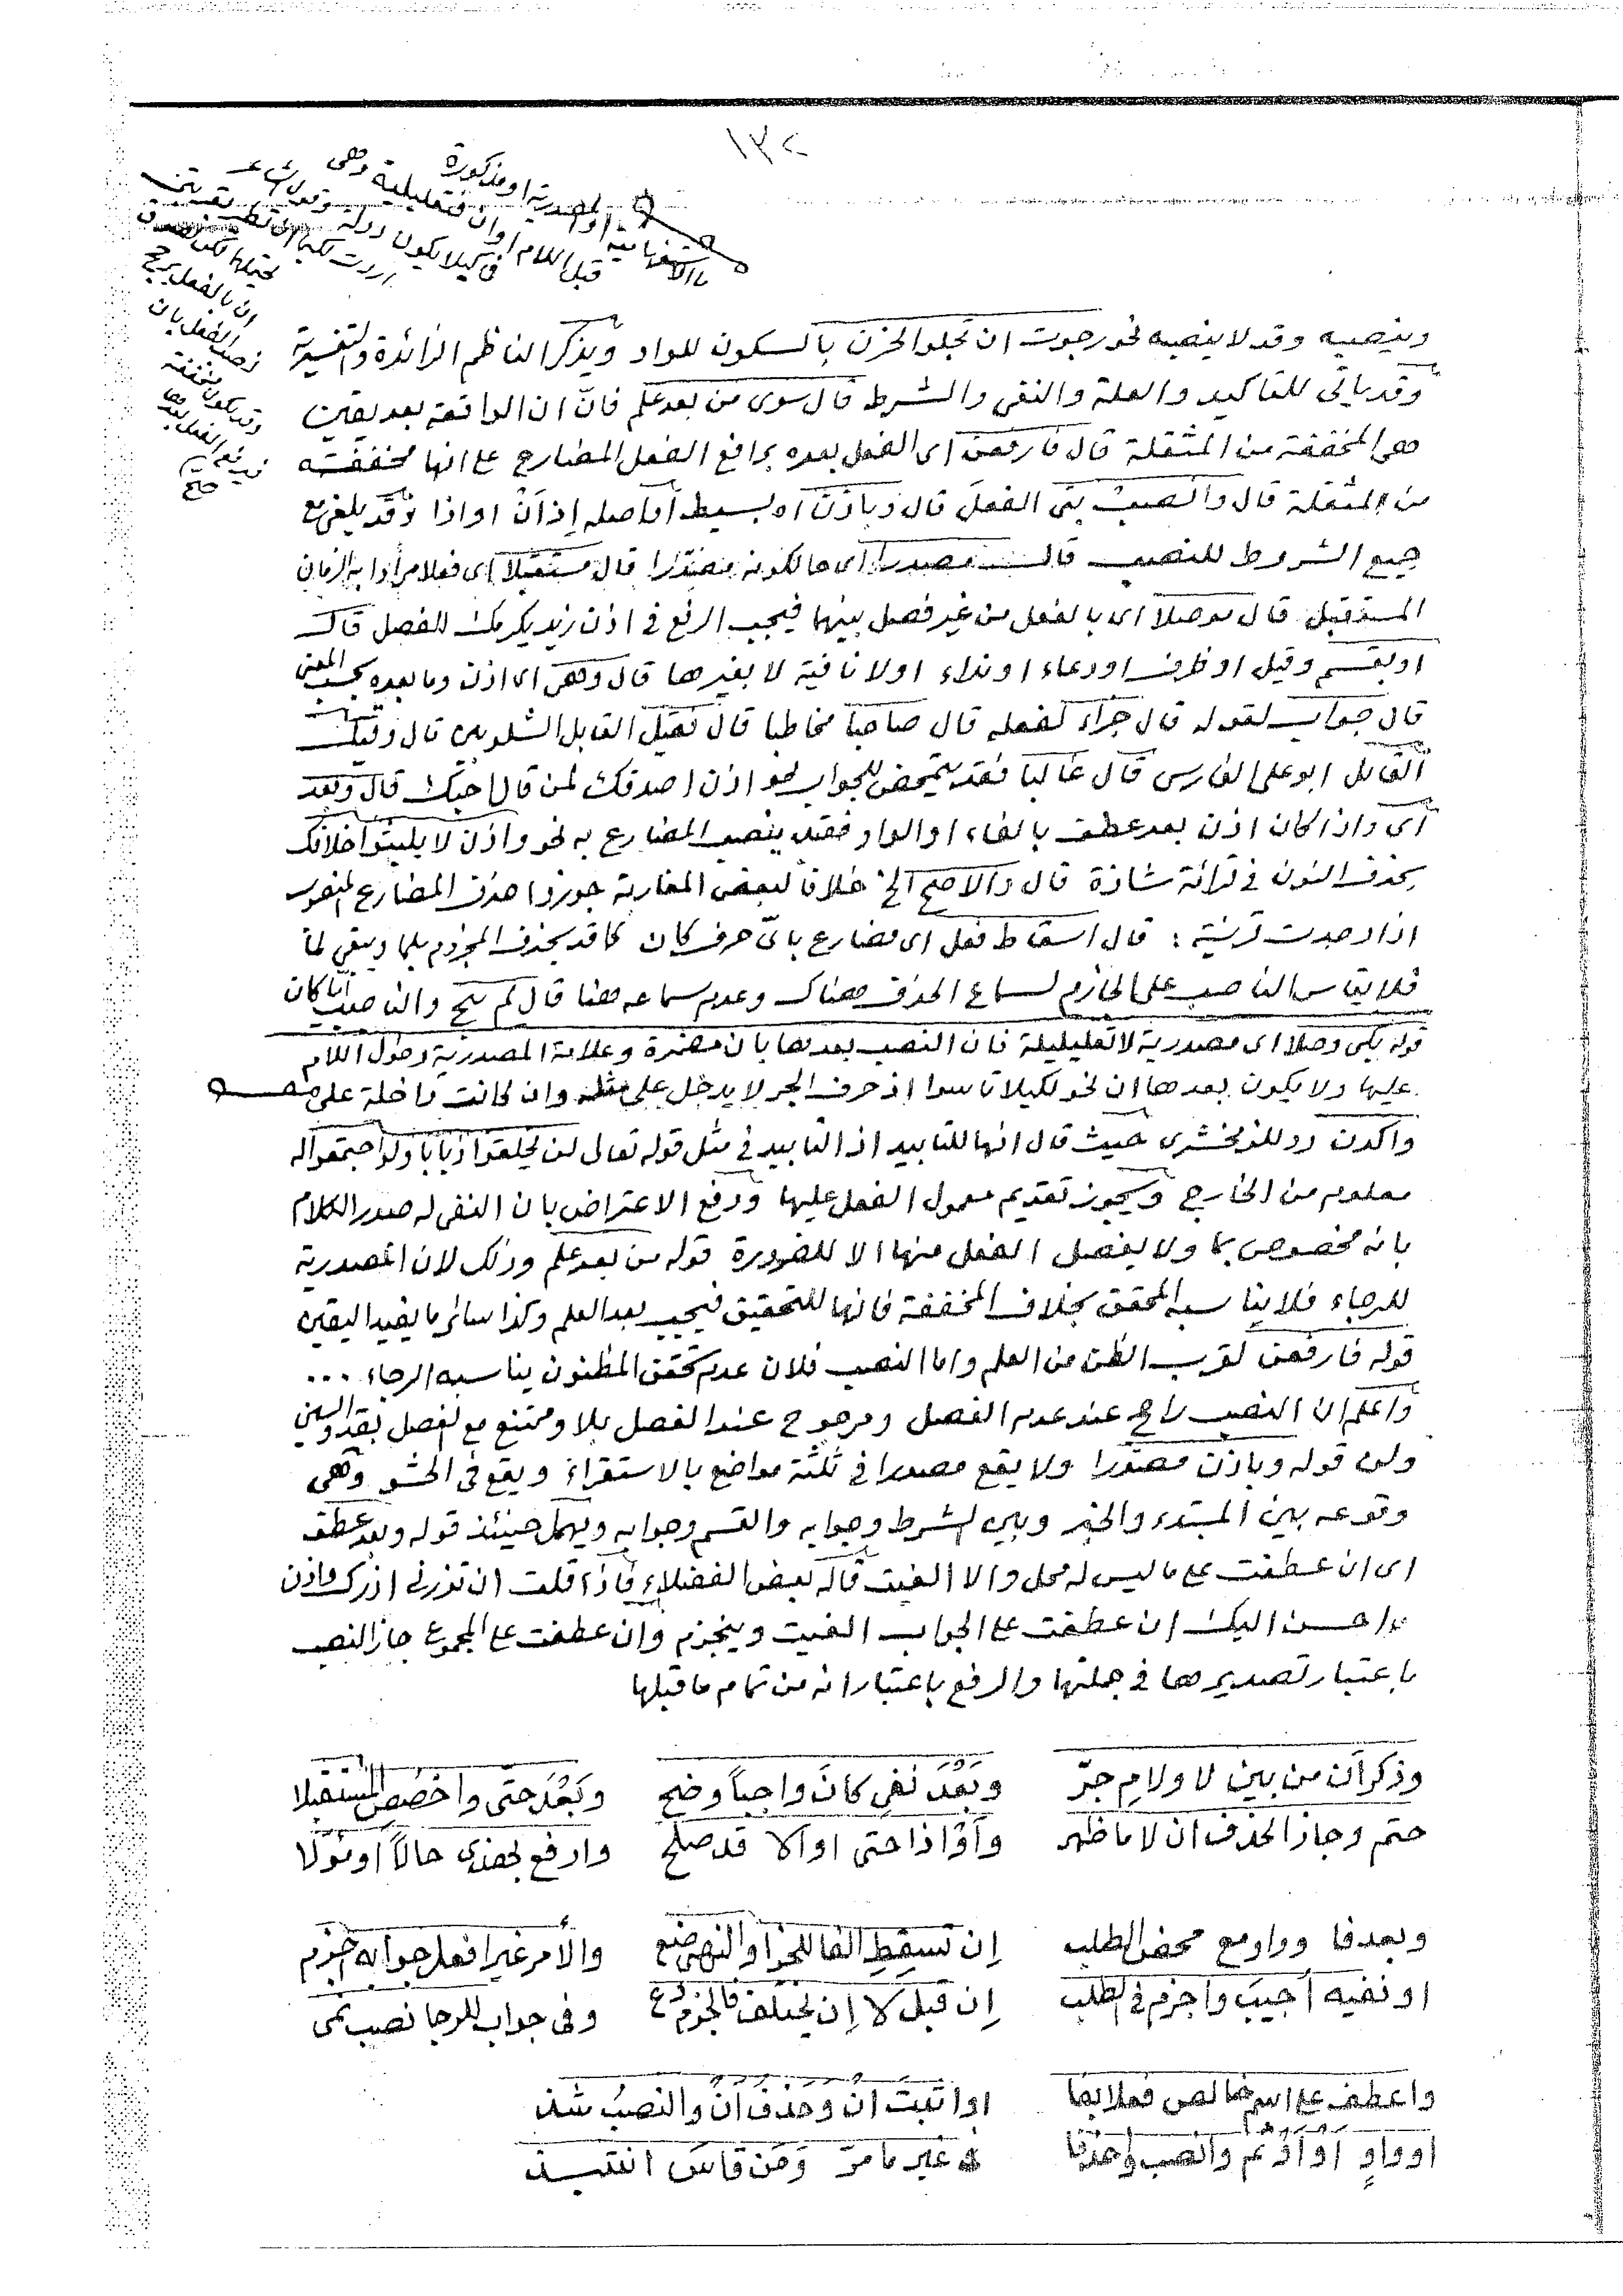 ١٣٢
ما الاستفهامية او المصدرية او مذكورة
قبل اللام او ان فتعليلية وهى
فى كيلا يكون دولة وقول الشاعر
اردت لكيما ان تطير بقربتى
ان بالفعل يرجح
نصب الفعل بان
وقد يكون مخففة
فيرفع الفعل بعدها
صح
وينصبه وقد لا ينصبه نحو رجوت ان تجلو الحزن بالسكون للواو ويذكر الناظم الزائدة والتفسيرية
وقد يأتى للتاكيد والعلة والنفى والشرط قال سوى من بعد علم فانّ ان الواقعة بعد يقين
هى المخففة من المثقلة قال فارفعن اى الفعل بعده برافع الفعل المضارع على انها مخففة
من المثقلة قال وانصب بتى الفعل قال وباذن اه بسيط او اصله إذ اَنْ او اذا وقد يلغى مع
جميع الشروط للنصب قال مصدرا اى حالكونه متصدّرا قال مستقبلا اى فعلا مرادا به الزمان
المستقبل قال موصلا اى بالفعل من غير فصل بينهما فيجب الرفع فى اذن زيد يكرمك للفصل قال
او بقسم وقيل او ظرف او دعاء او نداء او لا نافية لا بغيرها قال وهى اى اذن وما بعده بحسب المعنى
قال جواب لقوله قال جزاء لفعله قال صاحبا مخاطبا قال فقيل القايل الشلوبين قال وقيل
القايل ابو على الفارسى قال غالبا فقد يتمحض للجواب نحو اذن اصدقك لمن قال احبّك قال وبعد
اى واذا كان اذن بعد عطف بالفاء او الواو فقد ينصب المضارع به نحو واذن لا يلبثوا خلافك
بحذف النون فى قرائة شاذة قال والاصح الخ خلافا لبعض المغاربة جوزوا حذف المضارع المنصوب
اذا وجدت قرينة : قال اسقاط فعل اى مضارع باىّ حرف كان كما قد يحذف المجزوم بلما ويبقى لما
فلا يقاس الناصب على الجازم لسماع الحذف هناك وعدم سماعه هنا قال لم يبح والناصب ايّا كان
قوله بكى وصلا اى مصدرية لا تعليلية فان النصب بعدها بان مضمرة وعلامة المصدرية دخول اللام
عليها ولا يكون بعدها ان نحو لكيلا تاسوا اذ حرف الجر لا يدخل على مثله وان كانت داخلة على
واكدن رد للزمخشرى حيث قال انها للتابيد اذ التابيد فى مثل قوله تعالى لن يخلقوا ذبابا ولو اجتمعوا له
معلوم من الخارج ويجوز تقديم معمول الفعل عليها ودفع الاعتراض بان النفى له صدر الكلام
بانه مخصوص بما ولا يفصل الفعل منها الا للضرورة قوله من بعد علم وذلك لان المصدرية
للرجاء فلا يناسبه المحقق بخلاف المخففة فانها للتحقيق فيجب بعد العلم وكذا سائر ما يفيد اليقين
قوله فارفعن لقرب الظن من العلم واما النصب فلان عدم تحقق المظنون يناسبه الرجاء ...
واعلم ان النصب راجح عند عدم الفصل ومرجوح عند الفصل بلا وممتنع مع لفصل بقد والسين
ولن قوله وباذن مصدّرا ولا يقع مصدرا فى ثلثة مواضع بالاستقراء ويقع فى الحشو وهى
وقوعه بين المبتدء والخبر وبين الشرط وجوابه والقسم وجوابه ويهمل حينئذ قوله وبعد عطف
اى ان عطفت على ما ليس له محل والا الغيت قاله بعض الفضلاء فاذا قلت ان تزرنى ازرك واذن
احسن اليك ان عطفت على الجواب الغيت وينجزم وان عطفت على المجموع جاز النصب
باعتبار تصديرها فى جملتها والرفع باعتبار انه من تمام ما قبلها
وذكر اَن من بين لا ولامِ جرّ وبَعْدَ نفىٍ كانَ واجباً وضح وبَعْدَ حتّى واخصُصِ المستقبلا
حتم وجاز الحذف ان لا ما ظهر واَوْ اذا حتى او اَلا قد صلح وارفع بحذى حالاً او مؤوّلا
وبعد فا وواو مع محض الطلب اِن تسقِطِ الفا للجزا والنهى ضع والأمر غير افعل جوابه جزم
او نفيه أجيبَ واجزم فى الطلب اِن قبلَ لا اِن يختلف فالجزم دع وفى جواب للرجا نصب نمى
واعطف على اسم خالص فعلا بفا او اثبت اَنْ وحَذفُ اَنْ والنصبُ شذ
او واوٍ اَوْ اَوْ ثم وانصب واحذفا فى غير ما مرّ وَمَن قاسَ انتبذ